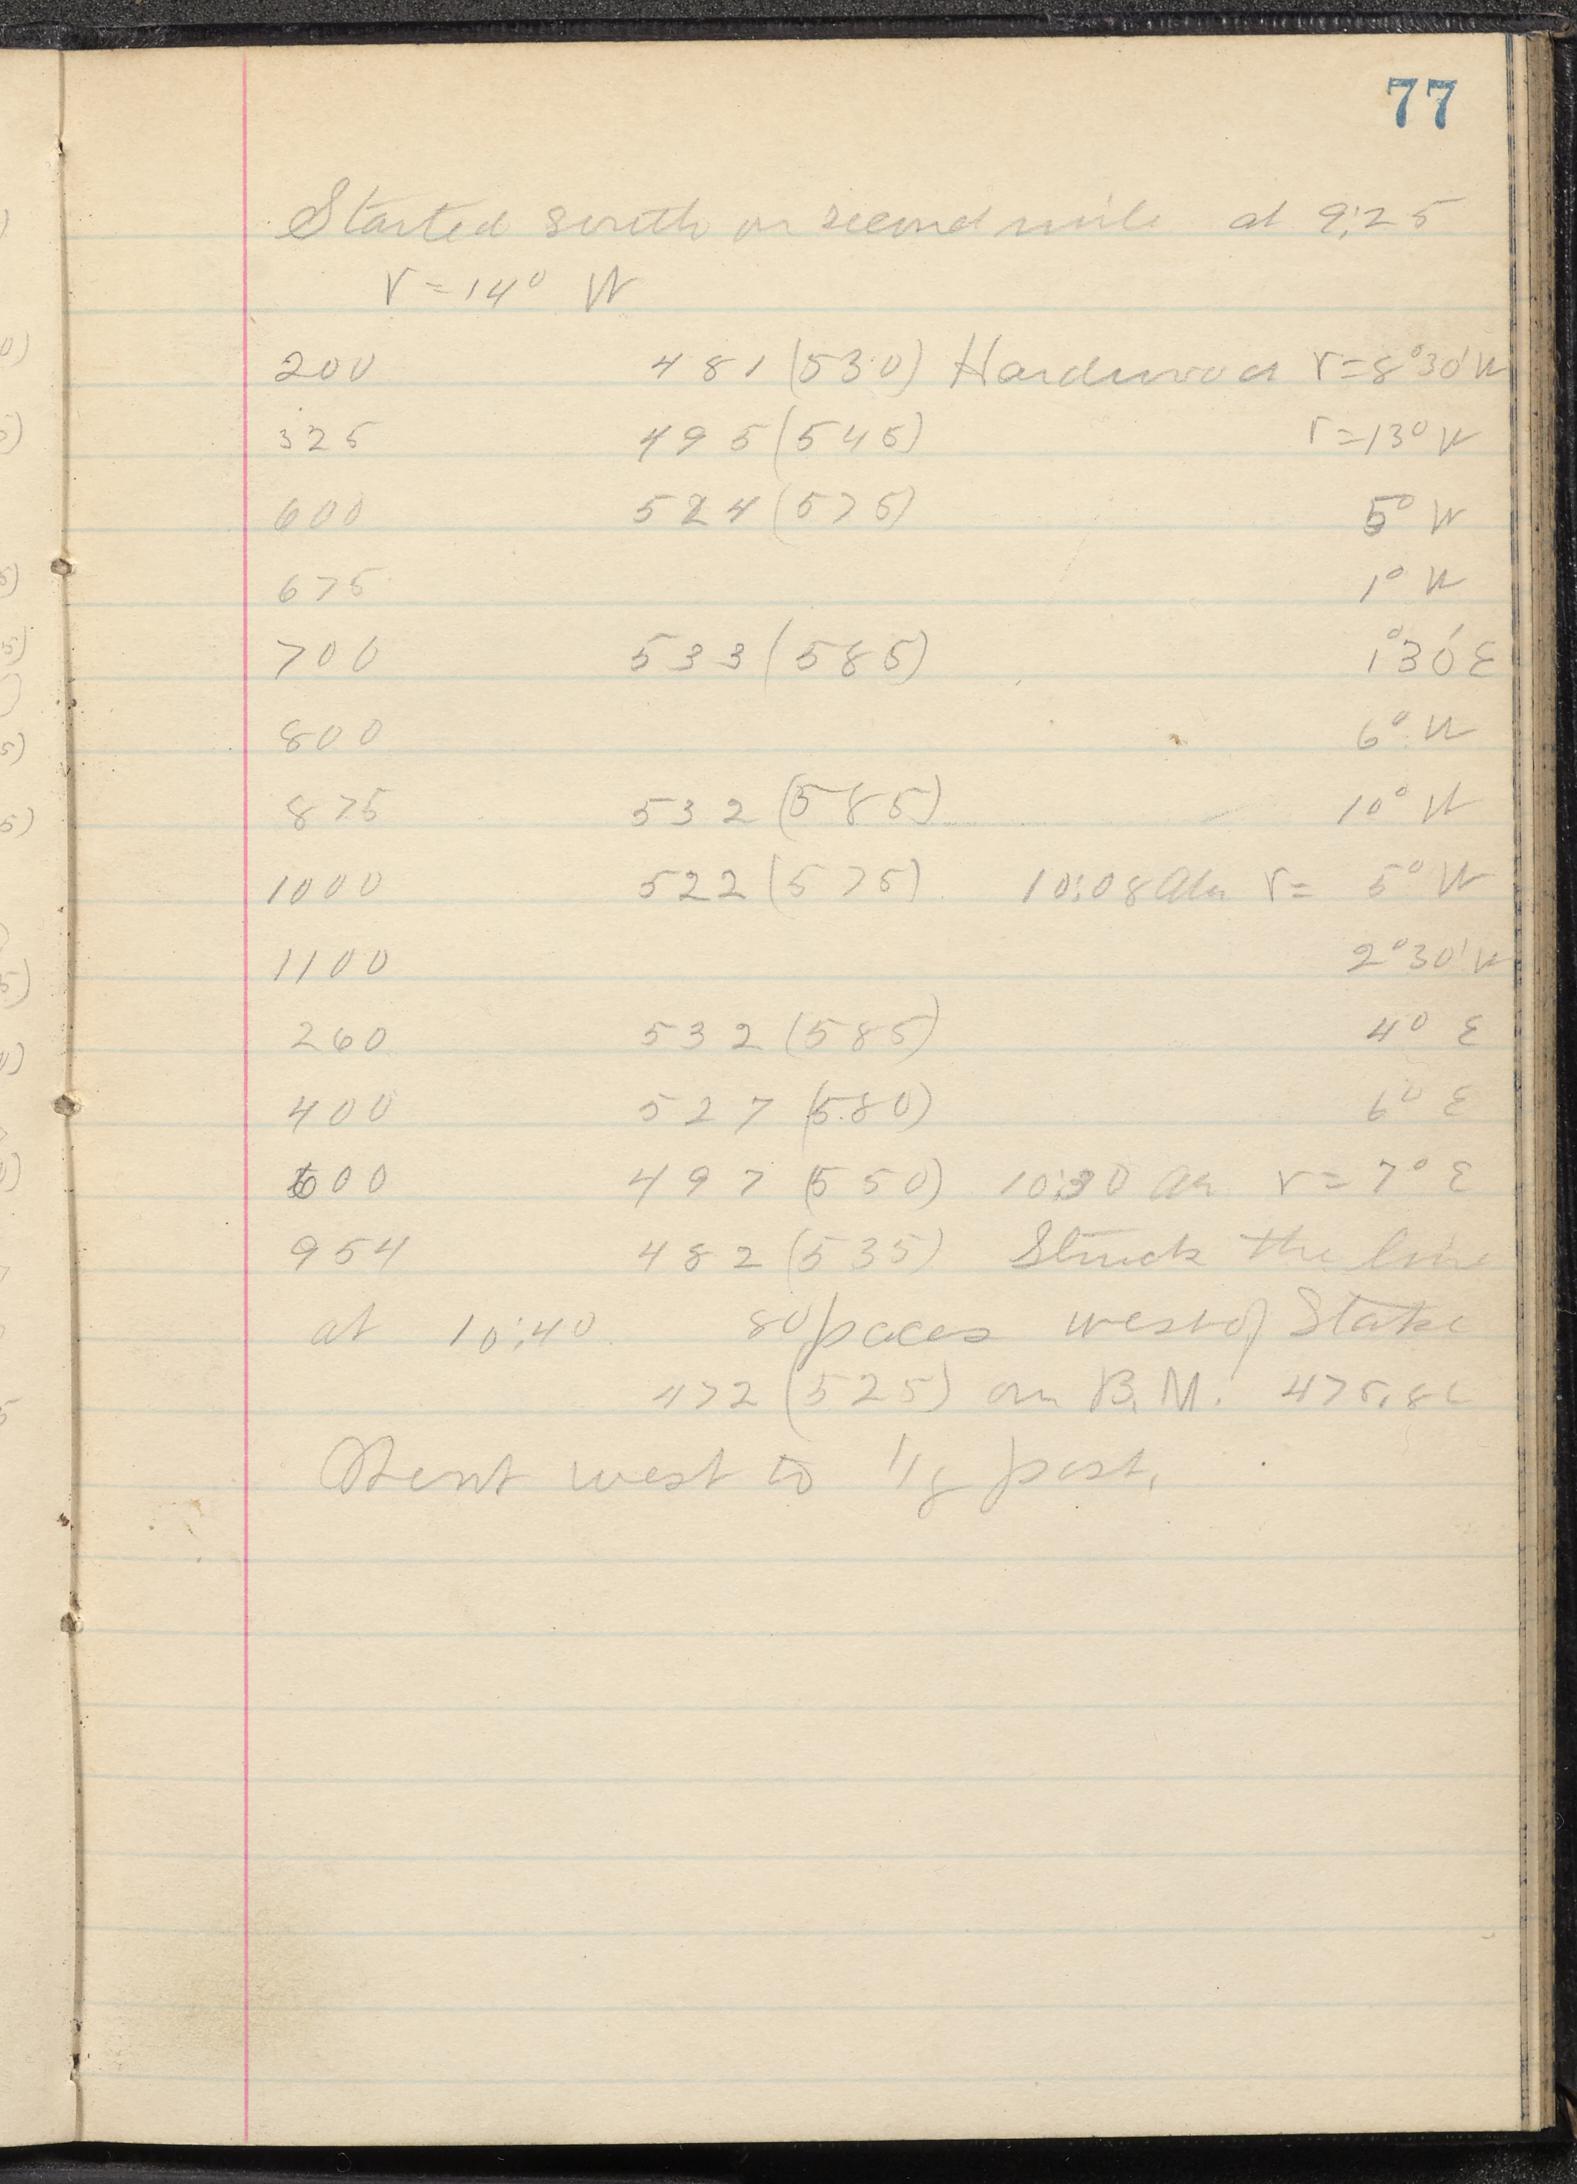 77
Started south on second mile at 9:25
V = 14° W
200 481 (530) Hardwood V=8°30' W
325 495 (545) V=13° W
600 524 (575) 5° W
675 1° W
700 533 (585) 1°30' E
800 6° W
875 532 (585) 10° W
1000 522 (575) 10:08 AM V= 5° W
1100 2°30' W
260 532 (585) 4° E
400 527 (580) 6° E
600 497 (550) 10:30 AM V= 7° E
954 482 (535) Struck the line
at 10:40 80 paces west of Stake
472 (525) on B.M.
Went west to 1/8 post.